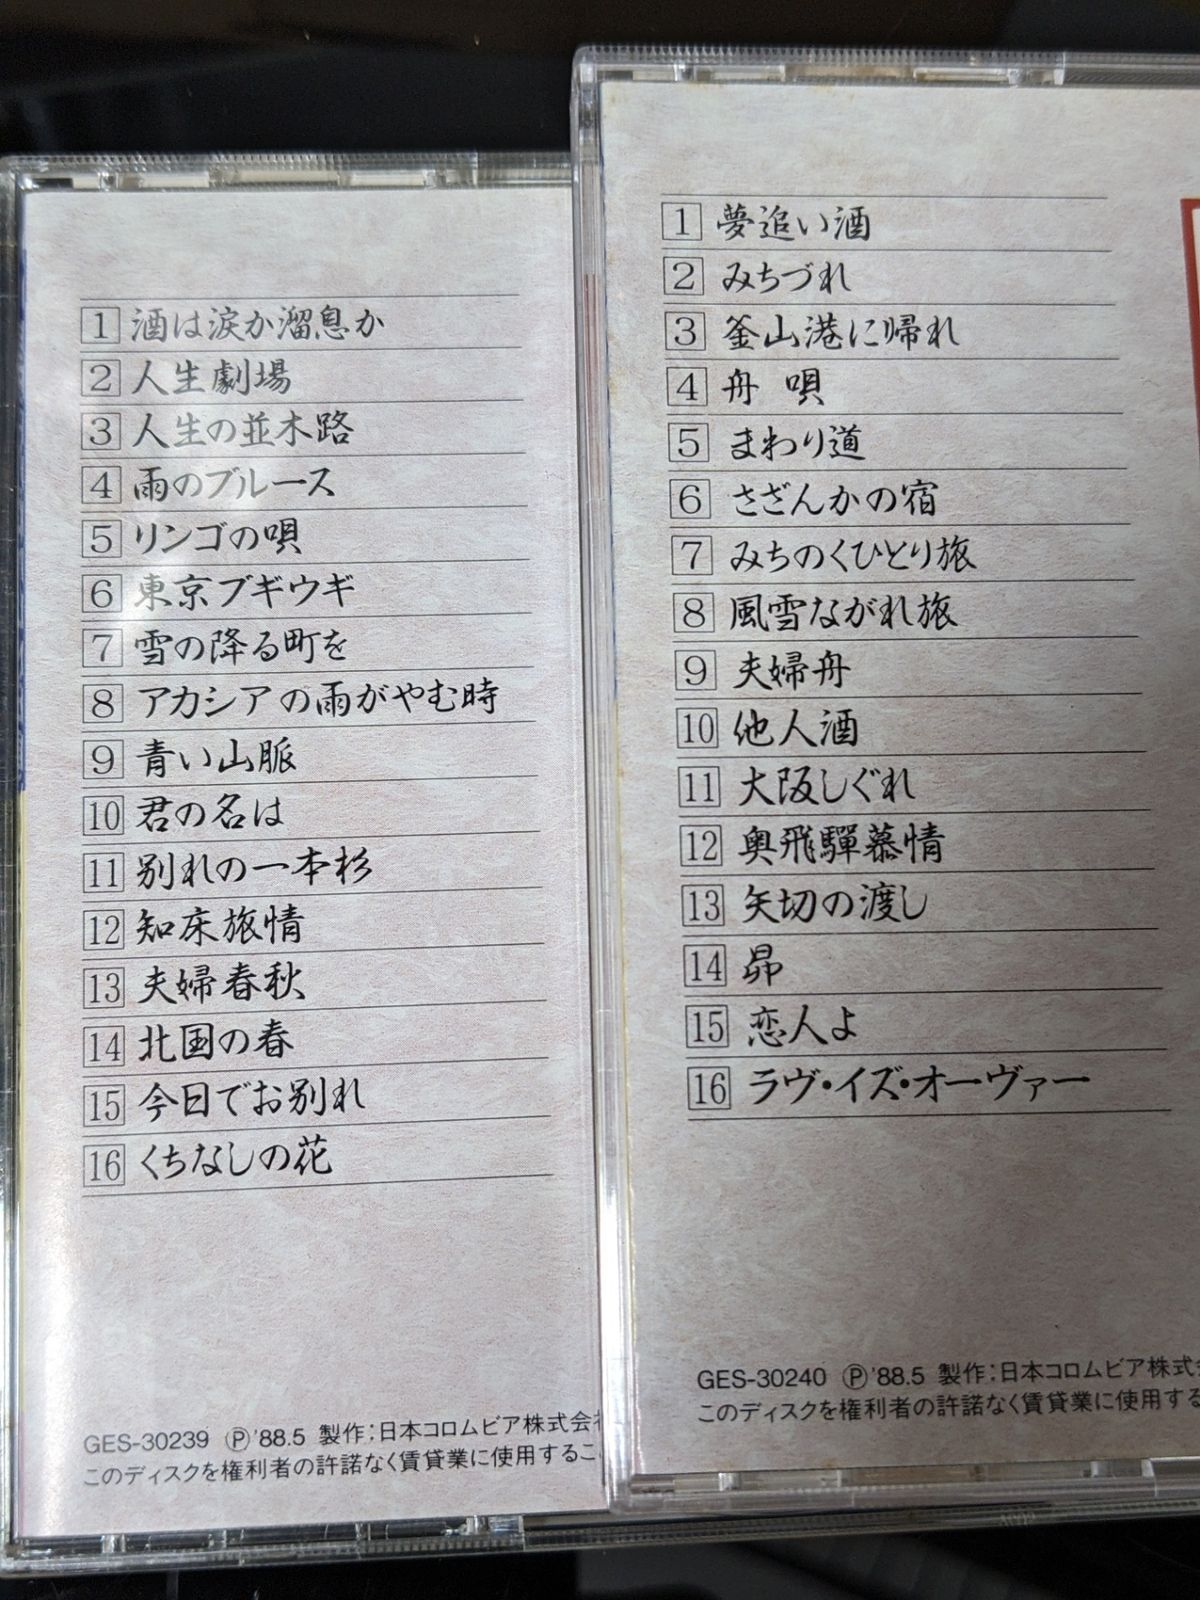 1 酒は涙か溜息か
2 人生劇場
3 人生の並木路
4 雨のブルース
5 リンゴの唄
6 東京ブギウギ
7 雪の降る町を
8 アカシアの雨がやむ時
9 青い山脈
10 君の名は
11 別れの一本杉
12 知床旅情
13 夫婦春秋
14 北国の春
15 今日でお別れ
16 くちなしの花
GES-30239 Ⓟ'88.5 製作:日本コロムビア株式会
このディスクを権利者の許諾なく賃貸業に使用するこ
1 夢追い酒
2 みちづれ
3 釜山港に帰れ
4 舟 唄
5 まわり道
6 さざんかの宿
7 みちのくひとり旅
8 風雪ながれ旅
9 夫婦舟
10 他人酒
11 大阪しぐれ
12 奥飛驒慕情
13 矢切の渡し
14 昴
15 恋人よ
16 ラヴ・イズ・オーヴァー
GES-30240 Ⓟ'88.5 製作:日本コロムビア株式
このディスクを権利者の許諾なく賃貸業に使用する